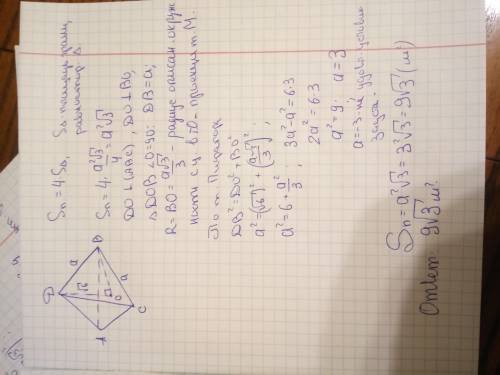 Sп = 4·S∆, S∆ площадь грани,
равностор. ∆.
Sп = 4· a²√3/4 = a²√3
DO ⊥ (ABC), DO ⊥ BO,
∆ DOB ∠O=90: DB=a;
R = BO = a√3/3 - радиус описан. окруж
ности с ц. в т.О - проекция т.
По т. Пифагора
DB² = DO² + BO²
a² = (√6)² + (a√3/3)²;
a² = 6 + a²/3; 3a² - a² = 6·3
2a² = 6·3
a² = 9 a = 3
a = -3 - не удовл. условию
задачи.
Sп = a²√3 = 3²√3 = 9√3 (м²)
Ответ 9√3 м².
D
a
B
√6
a
O
A
C